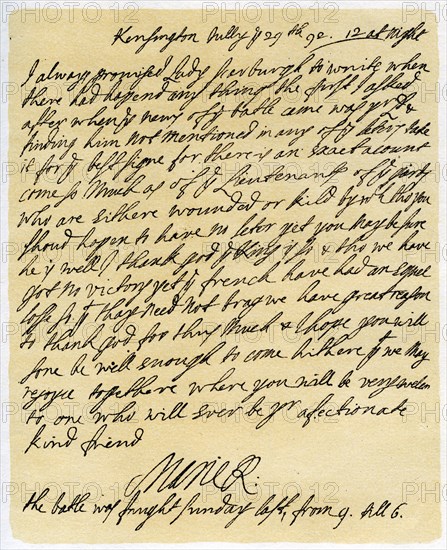 Kensington Jully ye 29th 92. 12 at night
I always promised Lady Scarburgh to write when
there had hapend any thing the first I asked
after when ye news of ye batle came was yr Ld &
finding him not mentioned in any of ye leters take
it for ye best signe for there is an exact account
come so much as of ye Lieutenants of ye party
who are either wounded or kild by wch tho you
shoud hapen to have no leter yet you may be sure
he is well I thank god ye King is so & tho we have
got no victory yet ye french have had an equal
lose so yt they need not brag we have great reason
to thank god for thus much & I hope you will
sone be well enough to come hithere yt we may
rejoyce togethere where you will be very welcom
to one who will ever be yr afectionate
kind friend
Marie R.
the batle was fought sunday last, from 9. till 6.